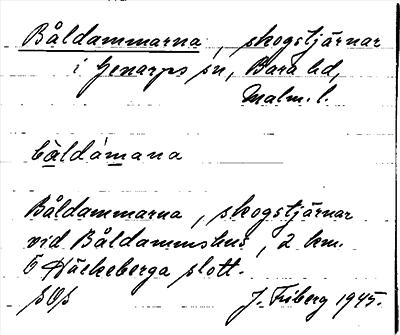 Båldammarna, skogstjärnar
i Genarps sn, Bara hd,
Malm. l.
båldåmana
Båldammarna, skogstjärnar
vid Båldammshus, 2 km.
Ö Häckeberga slott.
J. Friberg 1945.